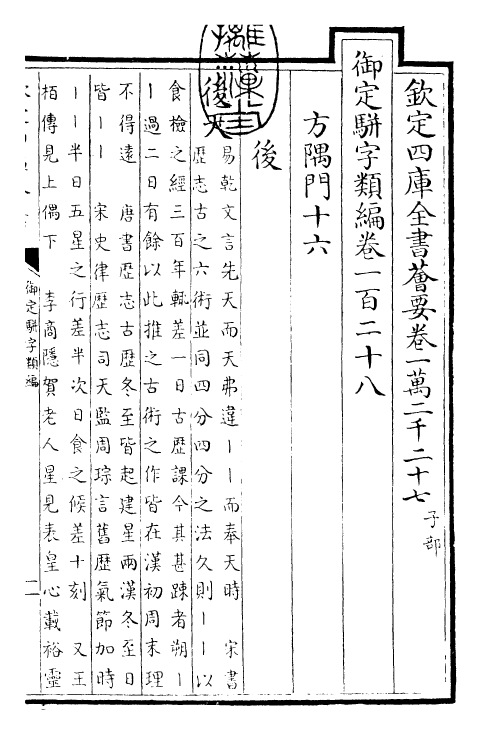 欽定四庫全書薈要卷一萬二千二十七 子部
御定駢字類編卷一百二十八
方隅門十六
後
後天 易乾文言先天而天弗違丨丨而奉天時 宋書
歷志古之六術並同四分四分之法久則丨丨以
食檢之經三百年輒差一日古歷課今其甚踈者朔丨
丨過二日有餘以此推之古術之作皆在漢初周末理
不得遠 唐書歷志古歷冬至皆起建星兩漢冬至日
皆丨丨 宋史律歷志司天監周琮言舊歷氣節加時
丨丨半日五星之行差半次日食之候差十刻 又王
栢傳見上偶下 李商隱賀老人星見表皇心載裕靈
御定駢字類編